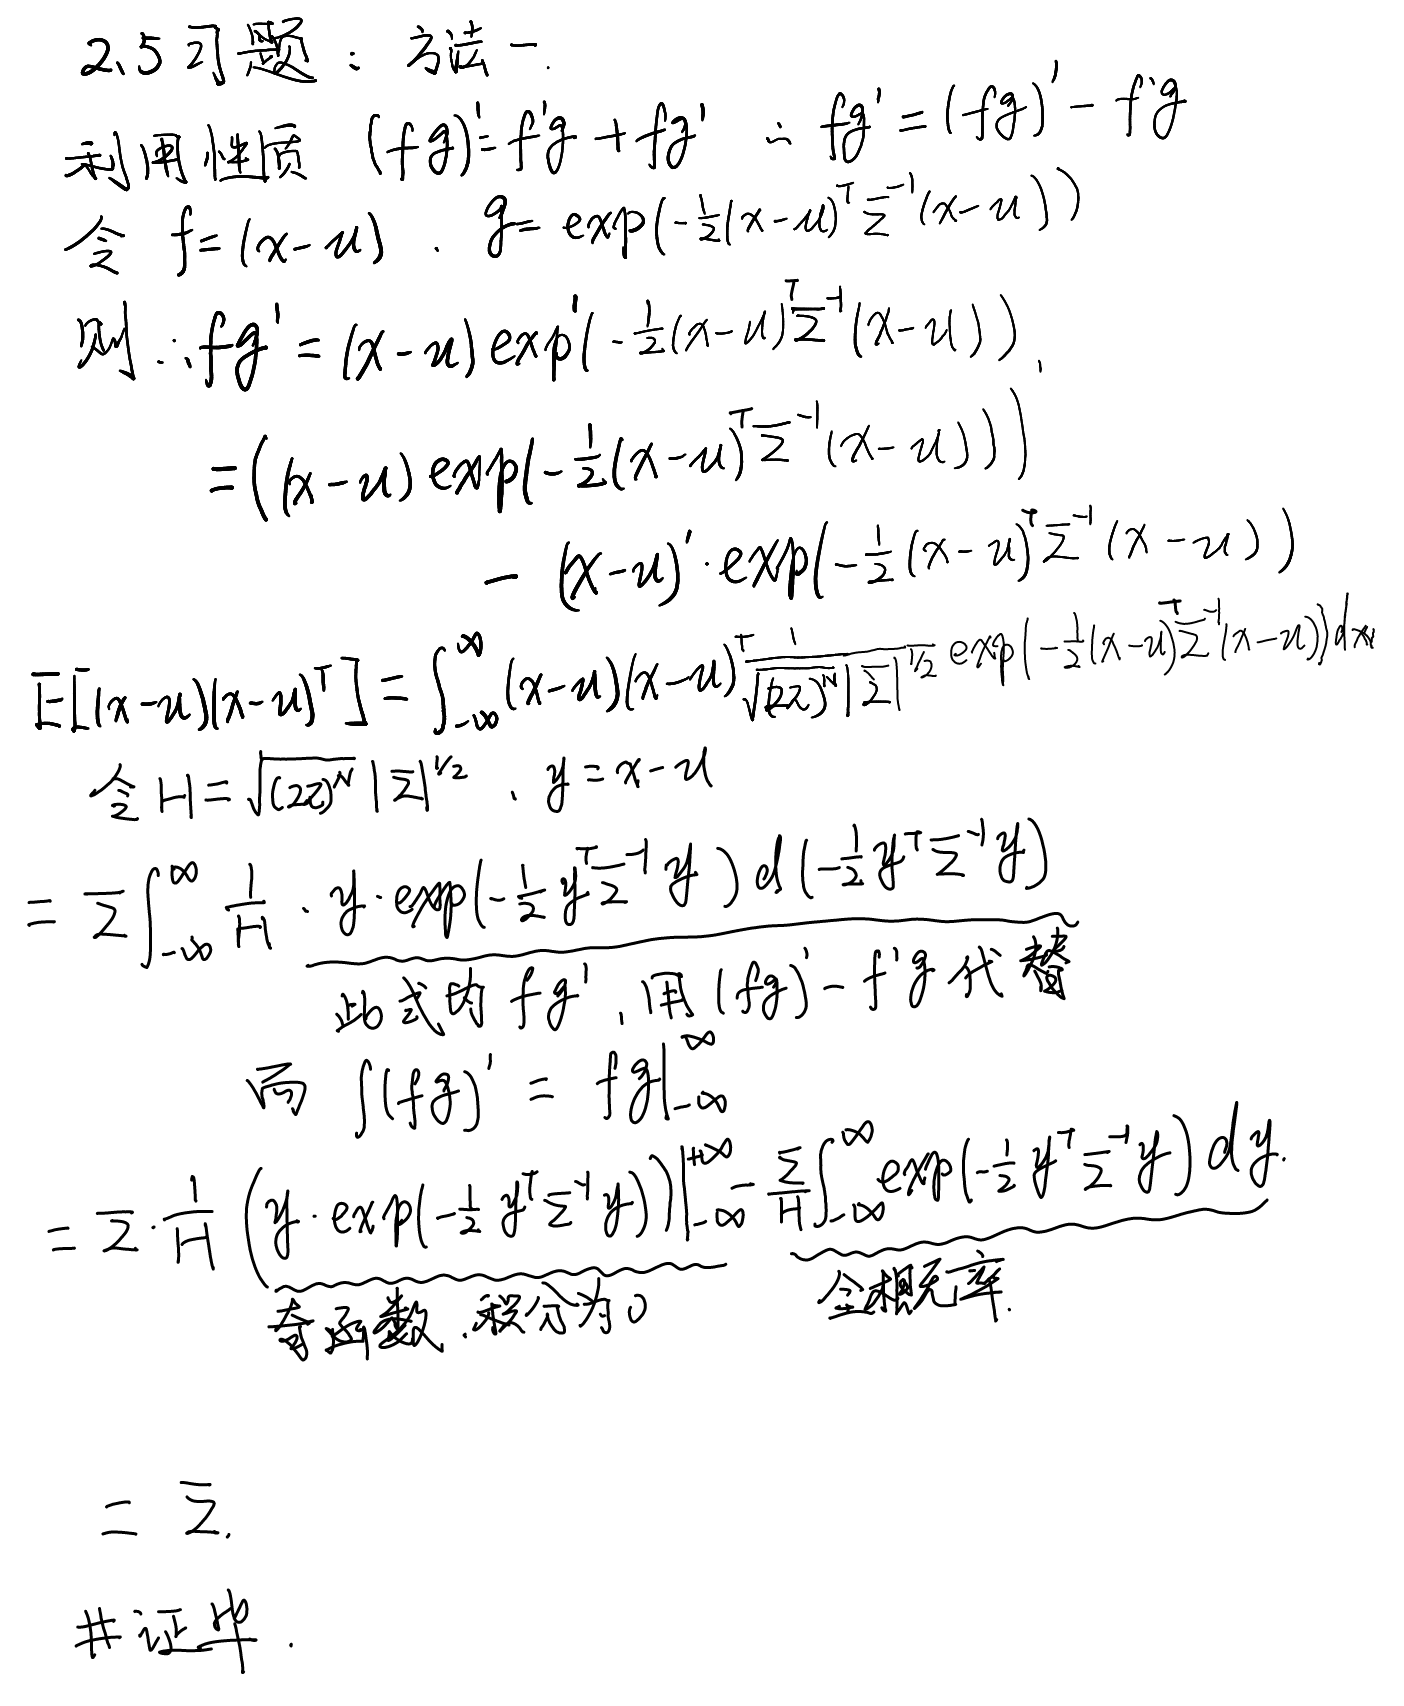 2、5习题：方法一.
利用性质 (fg)'=f'g+fg' ∴ fg'=(fg)'-f'g
令 f=(x-u). g=exp(-½(x-u)ᵀΣ⁻¹(x-u))
则∴fg'=(x-u)exp'(-½(x-u)ᵀΣ⁻¹(x-u)),
=((x-u)exp(-½(x-u)ᵀΣ⁻¹(x-u)))
-(x-u)'·exp(-½(x-u)ᵀΣ⁻¹(x-u))
E[(x-u)(x-u)ᵀ]=∫_{-∞}^{∞}(x-u)(x-u)ᵀ 1/(√(2π)ᴺ|Σ|^{1/2}) exp(-½(x-u)ᵀΣ⁻¹(x-u))dx
令H=√(2π)ᴺ|Σ|^{1/2}、y=x-u
=Σ∫_{-∞}^{∞} 1/H·y·exp(-½yᵀΣ⁻¹y)d(-½yᵀΣ⁻¹y)
此式为fg',用(fg)'-f'g代替
而 ∫(fg)'=fg|_{-∞}^{∞}
=Σ·1/H(y·exp(-½yᵀΣ⁻¹y))|_{-∞}^{+∞}-Σ/H∫_{-∞}^{∞}exp(-½yᵀΣ⁻¹y)dy.
奇函数.积分为0 全概率.
=Σ.
#证毕.